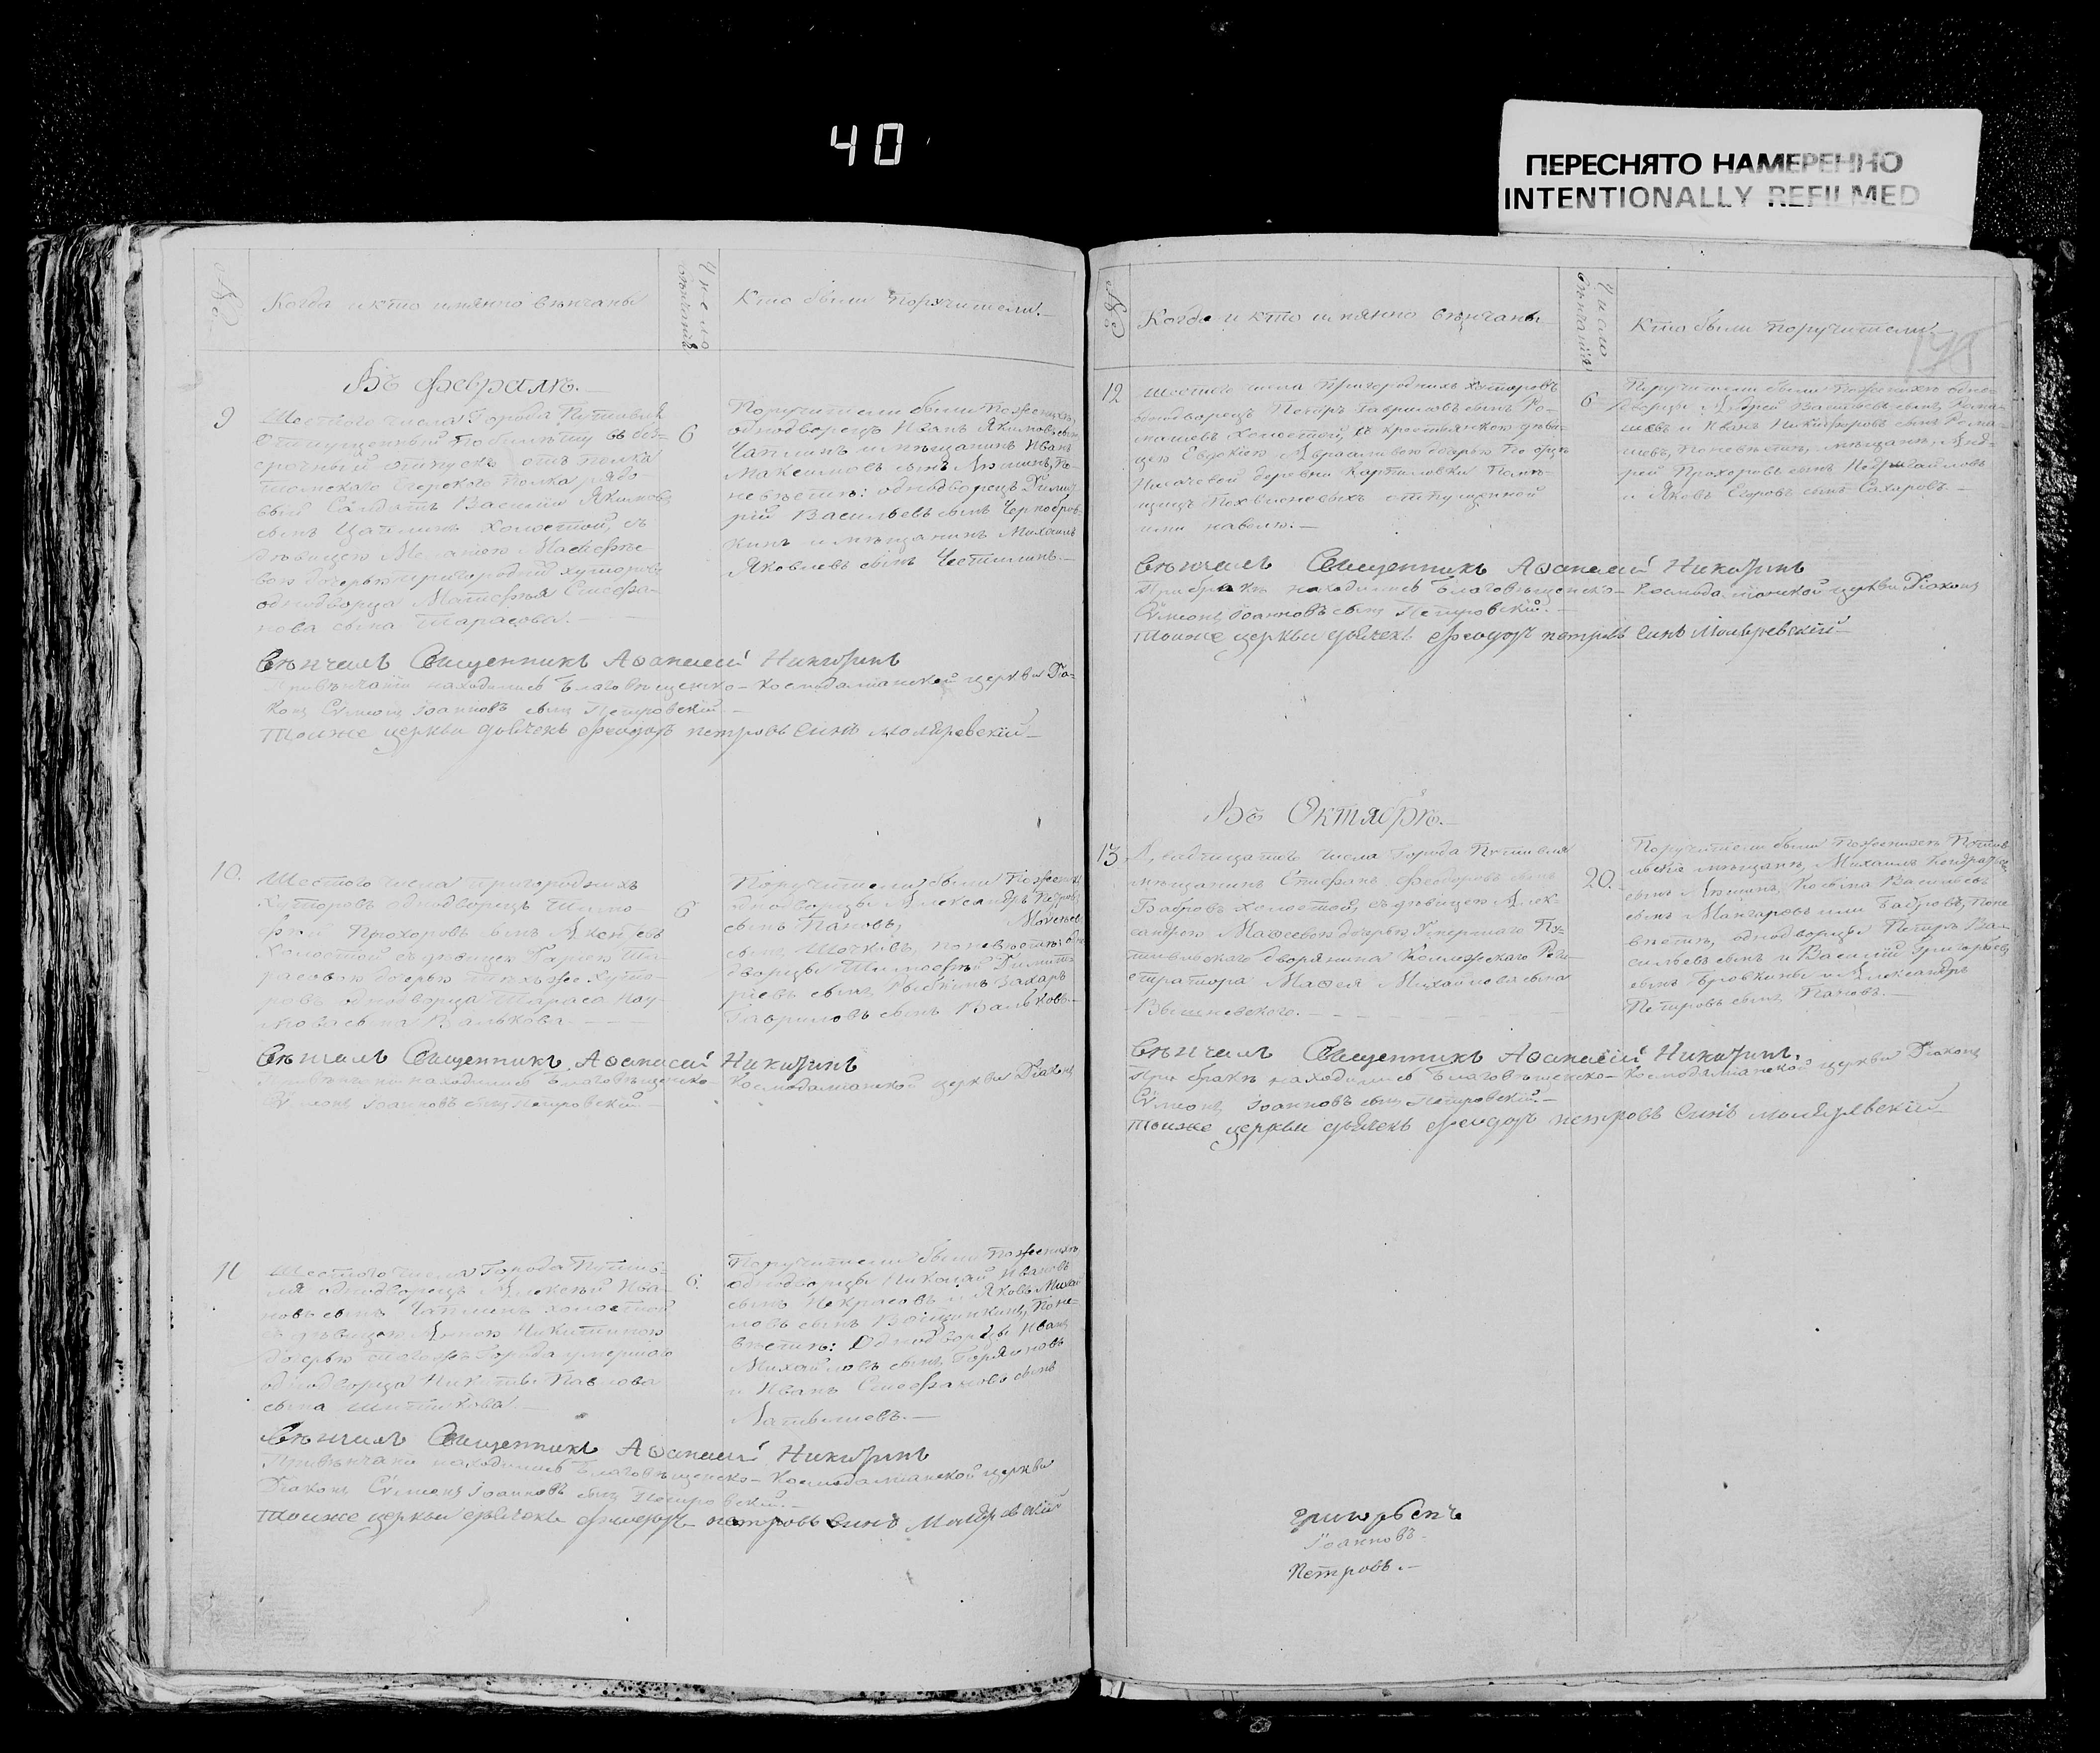 40
ПЕРЕСНЯТО НАМЕРЕННО
INTENTIONALLY REFILMED
№
Когда и кто имянно венчаны
Число венчанiя
Кто были поручители.
Въ Февралѣ.
9
Шестого числа Города Путивля
Отпущенный по билѣту въ без-
срочный отпускъ отъ полка
Томскаго Егерского полка рядо-
вый Салдатъ Василiй Якимовъ
сынъ Чаплинъ холостой, съ
дѣвицею Матфѣе-
вою дочерью пригородних хуторовъ
однодворца Матвѣя Стефа-
нова сына Тарасова.
6
Поручители были по женихѣ,
однодворецъ Иванъ Якимовъ сынъ
Чаплинъ и мѣщанинъ Иванъ
Максимовъ сынъ Лямин, по
невѣстѣ: однодворецъ Дими-
рiй Васильевъ сынъ Чернобров-
кинъ и мѣщанинъ Михаилъ
Яковлевъ сынъ
Вѣнчалъ Священникъ Афанасiй Никитинъ
находились Благовѣщенско-Космодамианской церкви Дiа-
конъ Сѵмеонъ Iоанновъ сынъ Петровскiй.
Тоиже церкви дьячекъ Феодоръ петровъ синъ
10.
Шестого числа пригородныхъ
Хуторовъ однодворецъ Тимо-
фѣй Прохоровъ сынъ
Холостой съ дѣвицею Та-
расовою дочерью тѣхъ же Хуто-
ровъ однодворца Тараса Нау-
мова сына Валькова
6
Поручители были по женихѣ
однодворцы Александръ Петровъ
сынъ Пановъ, Моисеевъ
сынъ по невѣстѣ: одно-
дворцы Тимофѣй Димит-
рiевъ сынъ Захаръ
Гавриловъ сынъ Вальковъ.
Вѣнчалъ Священникъ Афанасiй Никитинъ
находились Благовѣщенско-Космодамианской церкви Дiаконъ
Сѵмеонъ Iоанновъ сынъ Петровскiй
11
Шестого числа Города Путив-
ля однодворецъ Алексѣй Ива-
новъ сынъ Чаплинъ холостой
съ дѣвицею Анною Никитиною
дочерью того же Города умершаго
однодворца Никиты Павлова
сына Шитикова.
6.
Поручители были по женихѣ,
однодворцы Николай Ивановъ
сынъ Некрасовъ и Яковъ Михай-
ловъ сынъ по не-
вѣстѣ: Однодворцы Иванъ
Михайловъ сынъ Горяиновъ
и Иванъ Стефановъ сынъ
Латышевъ.
Вѣнчалъ Священникъ Афанасiй Никитинъ
находились Благовѣщенско-Космодамианской церкви
Дiаконъ Сѵмеонъ Iоанновъ сынъ Петровскiй.
Тоиже церкви дьячекъ Феодоръ петровъ синъ
№
Когда и кто имянно венчаны
Число венчанiя
Кто были поручители
12
Шестого числа Пригороднихъ Хуторовъ
однодворецъ Петръ Гавриловъ сынъ Ро-
машевъ Холостой, съ крестьянкою дѣви-
цею Евдокiею дочерью
деревни Корниловки Помѣ-
щицъ отпущенной
ими наволю.
6
Поручители были по женихѣ одно-
дворцы: Андрей Васильевъ сынъ Рома-
шевъ и Иванъ Никифоровъ сынъ Рома-
шевъ, по невѣстѣ, мѣщане, Анд-
рей Прохоровъ сынъ Недригайловъ
и Яковъ Егоровъ сынъ Сахаровъ.
Вѣнчалъ Священникъ Афанасiй Никитинъ
При бракѣ находились Благовѣщенско-Космодамианской церкви Дiаконъ
Сѵмеонъ Iоанновъ сынъ Петровскiй.
Тоиже церкви дьячекъ Феодоръ петровъ синъ
Въ Октябрѣ.
13
Двадцатаго числа Города Путивля
мѣщанинъ Стефанъ Феодоровъ сынъ
Бабровъ холостой, съ дѣвицею Алек-
сандрою Мафеевою дочерью Умершаго Пу-
тивльскаго дворянина Коллежскаго Реги-
стратора Мафея Михайлова сына
Вышневского.
20.
Поручители были по женихѣ Путивль-
скiе мѣщане, Михаилъ
сынъ Лямин, Козьма Васильевъ
сынъ Мангаровъ или Бабровъ, по не-
вѣстѣ, однодворцы Петръ Ва-
сильевъ сынъ и Василiй Григорьевъ
сынъ Бровкины и Александръ
Петровъ сынъ Пановъ.
Вѣнчалъ Священникъ Афанасiй Никитинъ,
При бракѣ находились Благовѣщенско-Космодамианской церкви Дiаконъ
Сѵмеонъ Iоанновъ сынъ Петровскiй.
Тоиже церкви дьячекъ Феодоръ петровъ синъ
Iоанновъ
Петровъ.